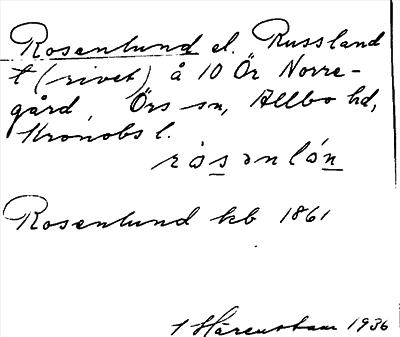 Rosenlund el. Russland
t (rivet) å 10 Ör Norre-
gård, Örs sn, Allbo hd,
Kronobs l.
rò̀sənlón
Rosenlund kb 1861
1936